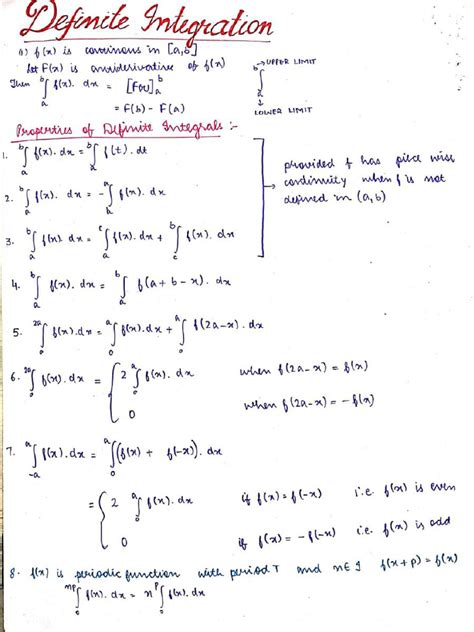 Definite Integration
(1) f(x) is continous in [a,b]
let F(x) is antiderivative of f(x)
Then ∫_a^b f(x). dx = [F(x)]_a^b
= F(b) - F(a)
∫_a^b → UPPER LIMIT
→ LOWER LIMIT
Properties of Definite Integrals :-
1. ∫_a^b f(x). dx = ∫_a^b f(t). dt
2. ∫_a^b f(x). dx = - ∫_b^a f(x). dx
3. ∫_a^b f(x). dx = ∫_a^c f(x). dx + ∫_c^b f(x). dx
→ provided f has piece wise
continuity when f is not
defined in (a,b)
4. ∫_a^b f(x). dx = ∫_a^b f(a+b-x). dx
5. ∫_0^{2a} f(x).dx = ∫_0^a f(x).dx + ∫_0^a f(2a-x). dx
6. ∫_0^{2a} f(x). dx = { 2 ∫_0^a f(x). dx when f(2a-x) = f(x)
0 when f(2a-x) = -f(x)
7. ∫_{-a}^a f(x). dx = ∫_0^a (f(x) + f(-x)). dx
= { 2 ∫_0^a f(x). dx if f(x) = f(-x) i.e. f(x) is even
0 if f(x) = -f(-x) i.e. f(x) is odd
8. f(x) is periodic function with period T and n∈I f(x+p) = f(x)
∫_0^{np} f(x). dx = n ∫_0^p f(x). dx